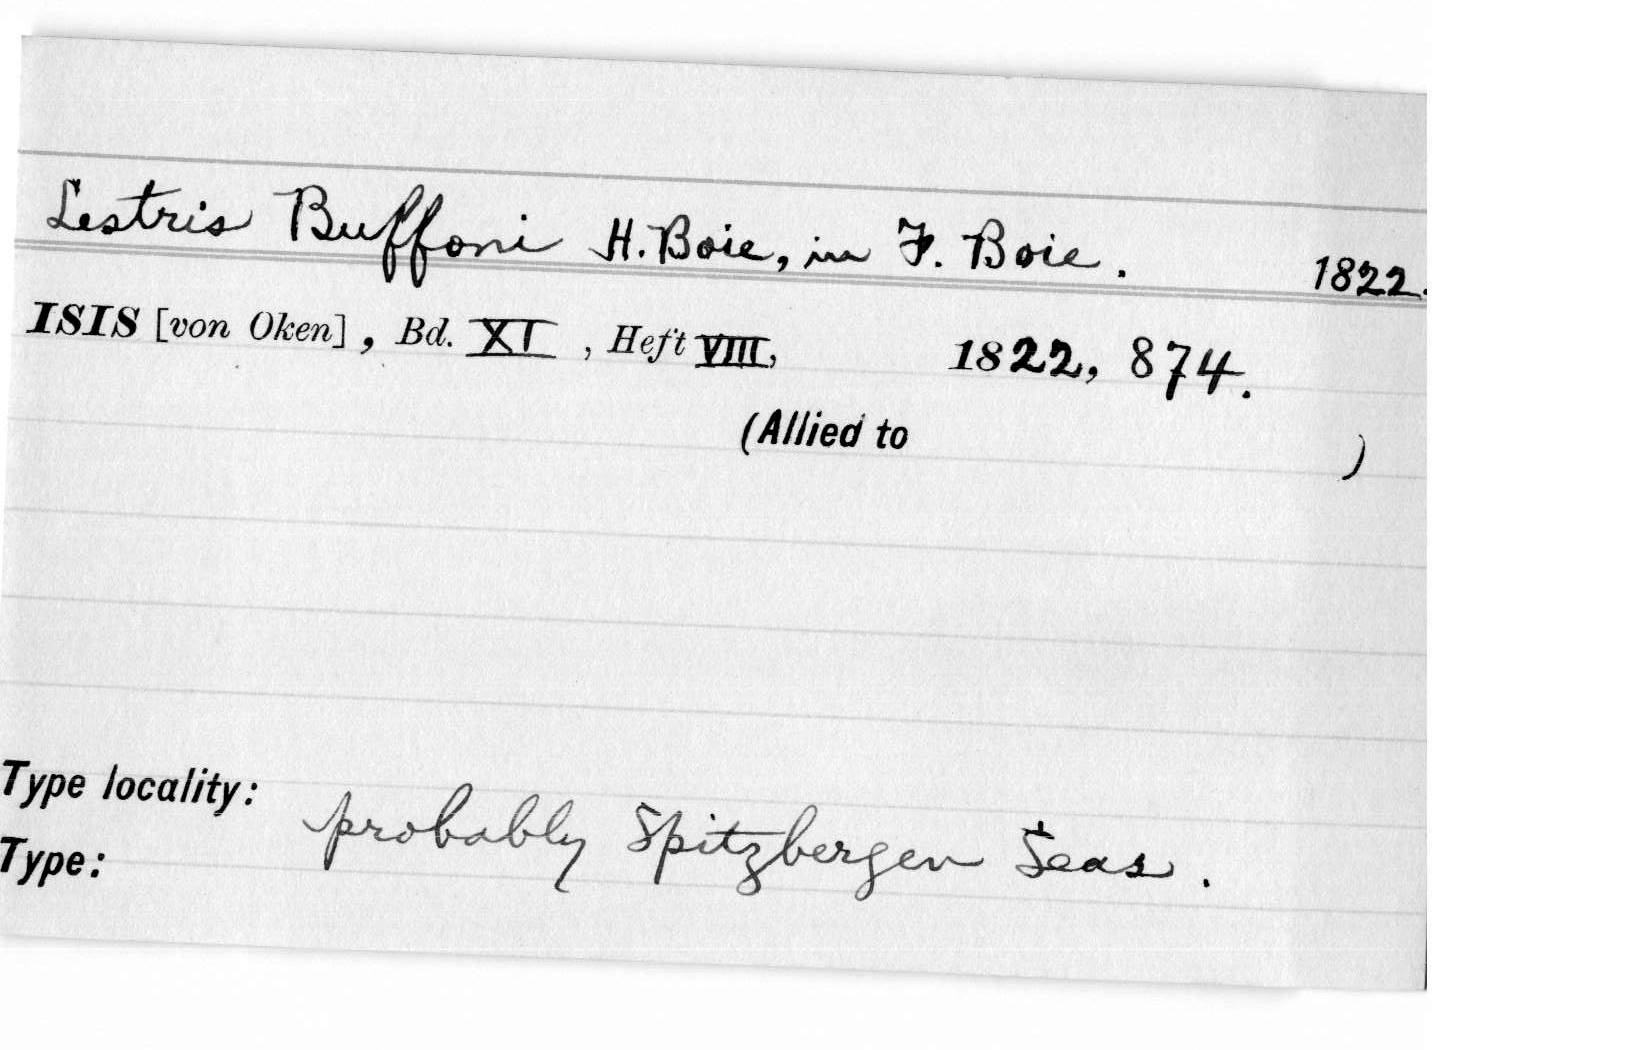 Lestris Buffoni H. Boie, in F. Boie. 1822.
ISIS [von Oken], Bd. XI, Heft VIII, 1822, 874.
(Allied to )
Type locality: probably Spitzbergen Seas.
Type: